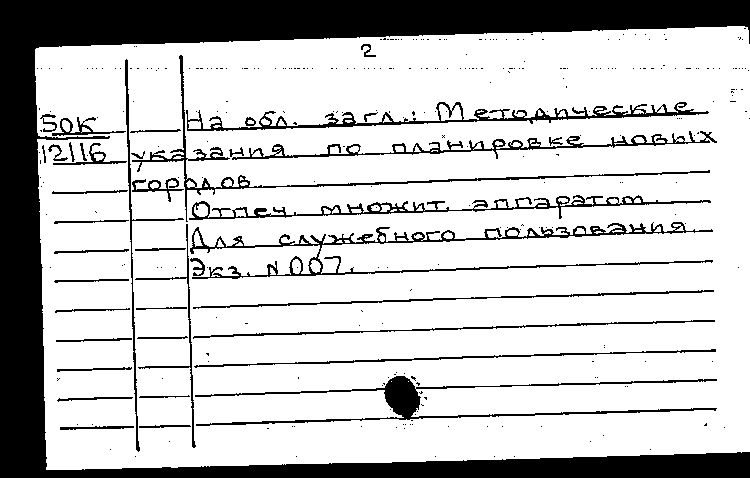 2
БОК На обл. загл.: Методические
12116 указания по планировке новых
городов.
Отпеч. множит. аппаратом.
Для служебного пользования.
Экз. N 007.